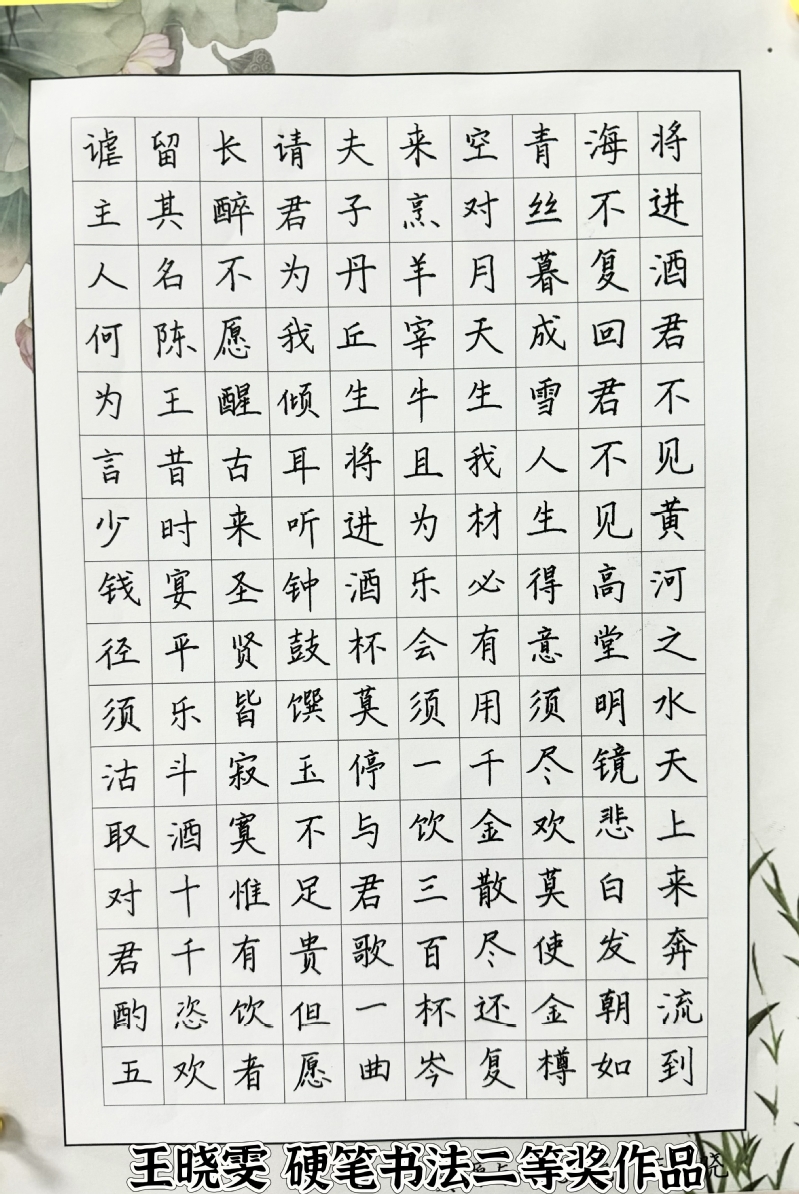 将进酒君不见黄河之水天上来奔流到
海不复回君不见高堂明镜悲白发朝如
青丝暮成雪人生得意须尽欢莫使金樽
空对月天生我材必有用千金散尽还复
来烹羊宰牛且为乐会须一饮三百杯岑
夫子丹丘生将进酒杯莫停与君歌一曲
请君为我倾耳听钟鼓馔玉不足贵但愿
长醉不愿醒古来圣贤皆寂寞惟有饮者
留其名陈王昔时宴平乐斗酒十千恣欢
谑主人何为言少钱径须沽取对君酌五
王晓雯 硬笔书法二等奖作品